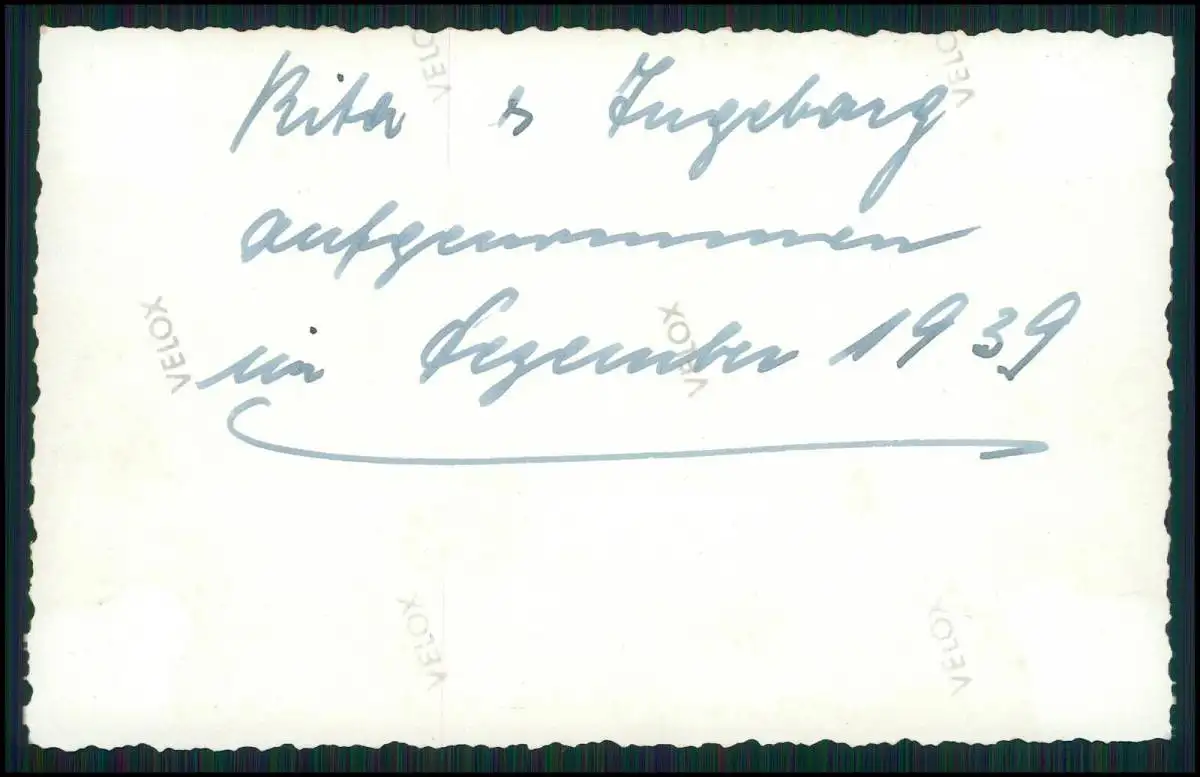 VELOX VELOX
Rita & Ingeborg
aufgenommen
VELOX VELOX
im Dezember 1939
VELOX VELOX